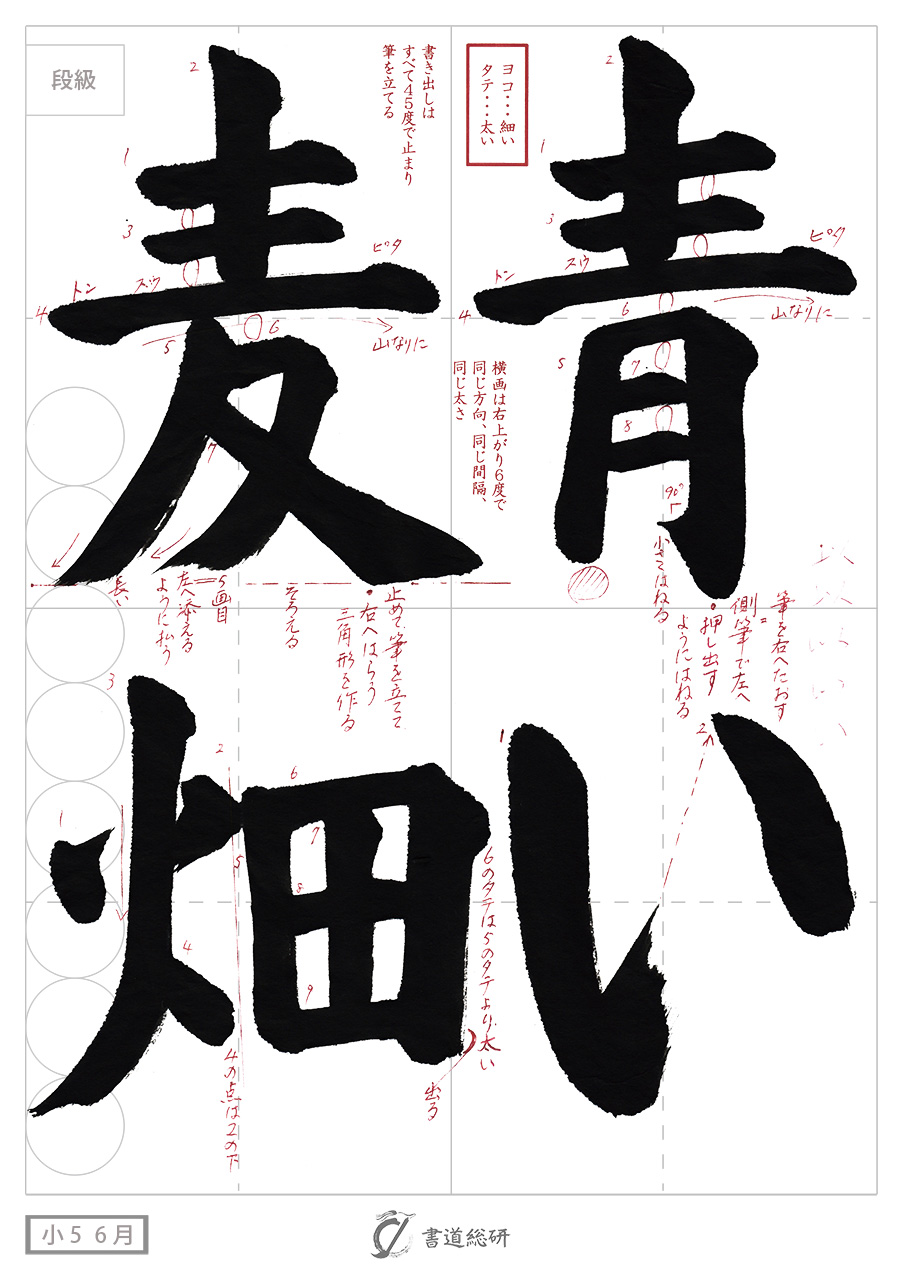 青い
麦畑
段級
ヨコ・・・細い
タテ・・・太い
書き出しは
すべて45度で止まり
筆を立てる
2
1
3
トン
スウ
ピタ
4
山なりに
6
5
7
8
90°
小さくはねる
筆を右へたおす
側筆で左へ
・押し出す
ようにはねる
横画は右上がり6度で
同じ方向、同じ間隔、
同じ太さ
1
2
2
1
3
トン
スウ
ピタ
4
山なりに
5
6
7
止めて筆を立てて
・右へはらう
三角形を作る
そろえる
5画目
左へ添える
ように払う
長い
3
2
1
6
7
5
8
4
9
6のタテは5のタテより太い
出る
4の点は2の下
小5 6月
書道総研